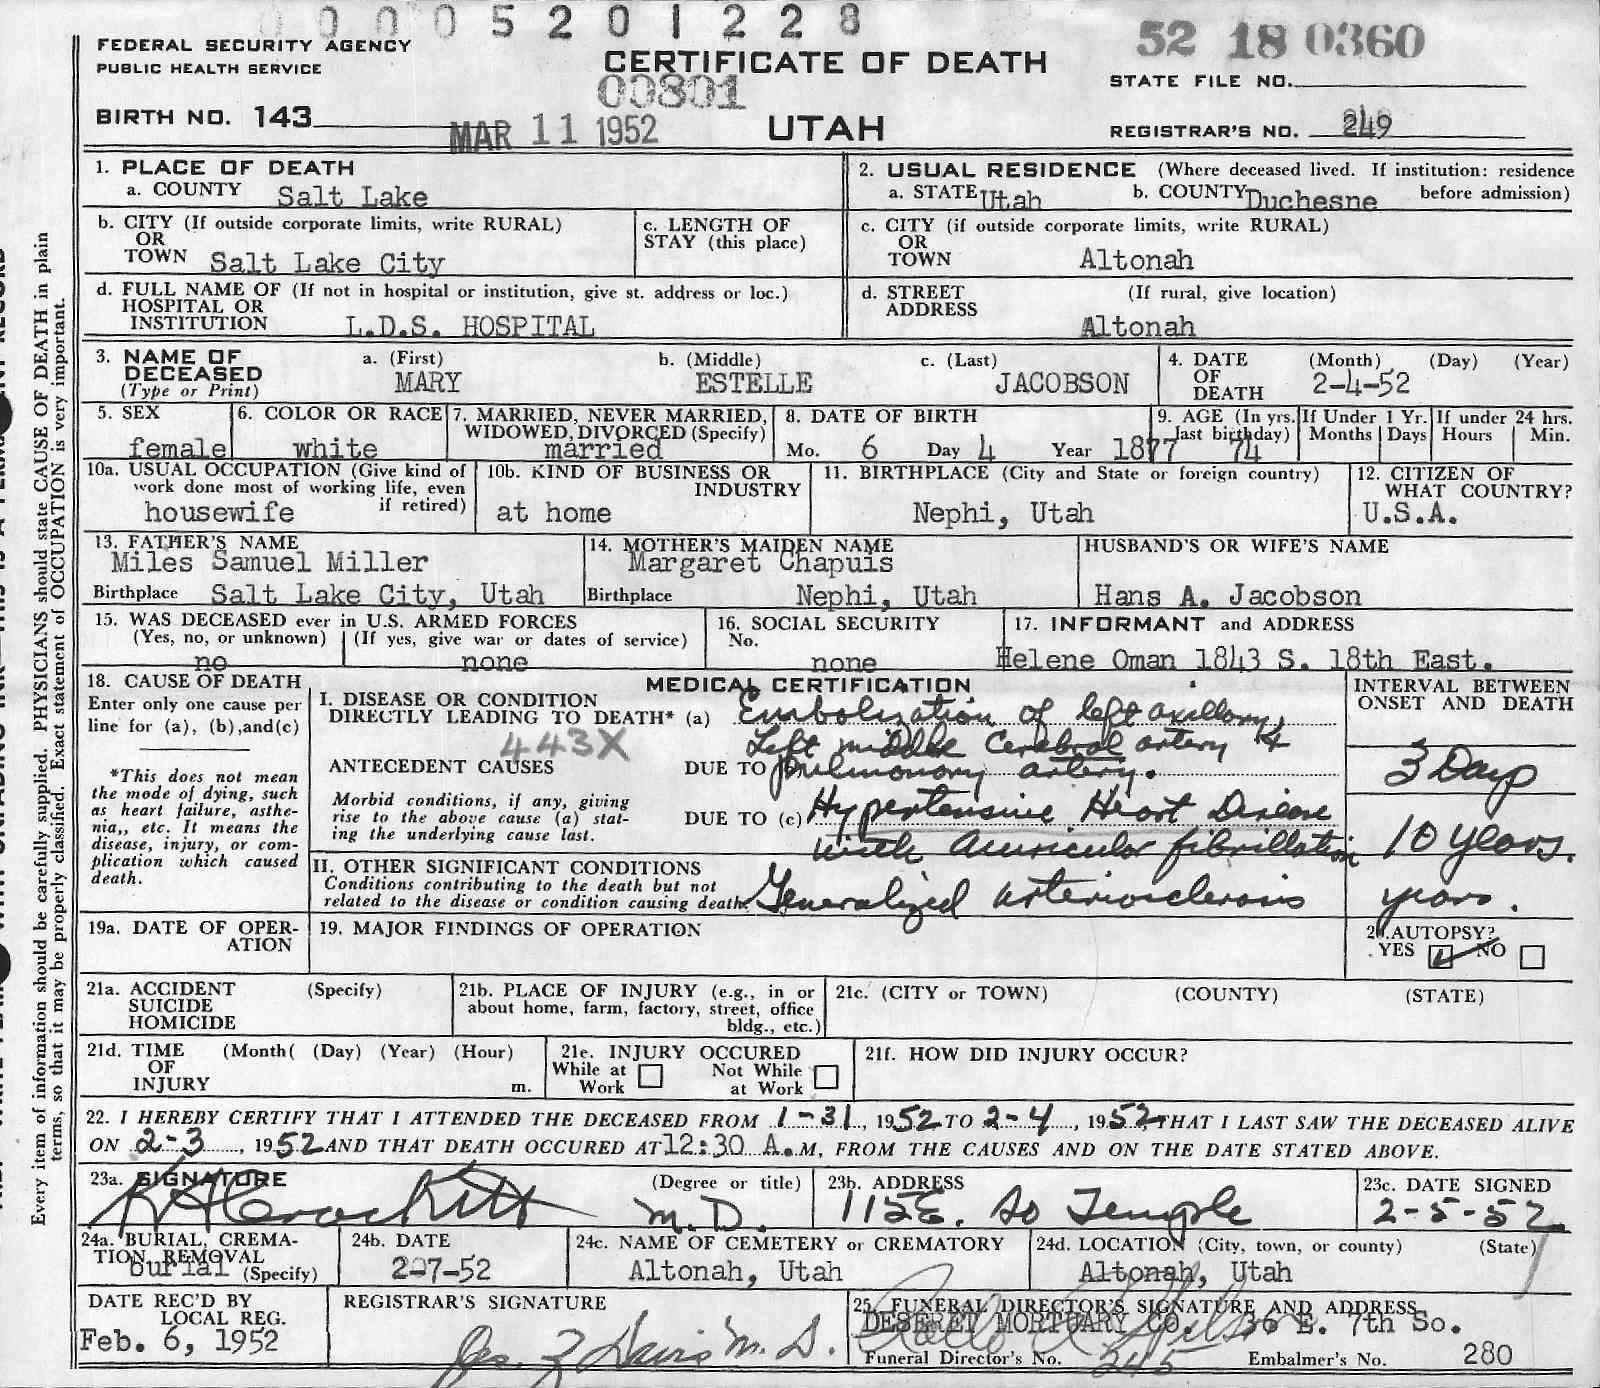 0 0 0 0 5 2 0 1 2 2 8
FEDERAL SECURITY AGENCY
PUBLIC HEALTH SERVICE
CERTIFICATE OF DEATH
52 18 0360
STATE FILE NO.
00801
BIRTH NO. 143
MAR 11 1952
UTAH
REGISTRAR'S NO. 249
1. PLACE OF DEATH
a. COUNTY Salt Lake
2. USUAL RESIDENCE (Where deceased lived. If institution: residence
a. STATE Utah b. COUNTY Duchesne before admission)
b. CITY (If outside corporate limits, write RURAL)
OR
TOWN Salt Lake City
c. LENGTH OF
STAY (this place)
c. CITY (if outside corporate limits, write RURAL)
OR
TOWN Altonah
d. FULL NAME OF (If not in hospital or institution, give st. address or loc.)
HOSPITAL OR
INSTITUTION L.D.S. HOSPITAL
d. STREET (If rural, give location)
ADDRESS
Altonah
3. NAME OF
DECEASED
(Type or Print)
a. (First) b. (Middle) c. (Last)
MARY ESTELLE JACOBSON
4. DATE (Month) (Day) (Year)
OF
DEATH 2-4-52
5. SEX
female
6. COLOR OR RACE
white
7. MARRIED, NEVER MARRIED,
WIDOWED, DIVORCED (Specify)
married
8. DATE OF BIRTH
Mo. 6 Day 4 Year 1877
9. AGE (In yrs.
last birthday)
74
If Under 1 Yr.
Months Days
If under 24 hrs.
Hours Min.
10a. USUAL OCCUPATION (Give kind of
work done most of working life, even
if retired)
housewife
10b. KIND OF BUSINESS OR
INDUSTRY
at home
11. BIRTHPLACE (City and State or foreign country)
Nephi, Utah
12. CITIZEN OF
WHAT COUNTRY?
U.S.A.
13. FATHER'S NAME
Miles Samuel Miller
Birthplace Salt Lake City, Utah
14. MOTHER'S MAIDEN NAME
Margaret Chapuis
Birthplace Nephi, Utah
HUSBAND'S OR WIFE'S NAME
Hans A. Jacobson
15. WAS DECEASED ever in U.S. ARMED FORCES
(Yes, no, or unknown) (If yes, give war or dates of service)
no none
16. SOCIAL SECURITY
No.
none
17. INFORMANT and ADDRESS
Helene Oman 1843 S. 18th East.
18. CAUSE OF DEATH
Enter only one cause per
line for (a), (b),and(c)
*This does not mean
the mode of dying, such
as heart failure, asthe-
nia,, etc. It means the
disease, injury, or com-
plication which caused
death.
MEDICAL CERTIFICATION
I. DISEASE OR CONDITION
DIRECTLY LEADING TO DEATH* (a) Embolization of left axillary,
443X Left middle Cerebral artery &
ANTECEDENT CAUSES DUE TO pulmonary artery.
Morbid conditions, if any, giving
rise to the above cause (a) stat-
ing the underlying cause last.
DUE TO (c) Hypertensive Heart Disease
with auricular fibrillation
II. OTHER SIGNIFICANT CONDITIONS
Conditions contributing to the death but not
related to the disease or condition causing death. Generalized arteriosclerosis
INTERVAL BETWEEN
ONSET AND DEATH
3 Days
10 years.
years.
19a. DATE OF OPER-
ATION
19. MAJOR FINDINGS OF OPERATION
20. AUTOPSY?
YES NO
21a. ACCIDENT (Specify)
SUICIDE
HOMICIDE
21b. PLACE OF INJURY (e.g., in or
about home, farm, factory, street, office
bldg., etc.)
21c. (CITY or TOWN) (COUNTY) (STATE)
21d. TIME (Month( (Day) (Year) (Hour)
OF
INJURY m.
21e. INJURY OCCURED
While at Not While
Work at Work
21f. HOW DID INJURY OCCUR?
22. I HEREBY CERTIFY THAT I ATTENDED THE DECEASED FROM 1-31, 1952 TO 2-4, 1952 THAT I LAST SAW THE DECEASED ALIVE
ON 2-3, 1952 AND THAT DEATH OCCURED AT 12:30 A.M, FROM THE CAUSES AND ON THE DATE STATED ABOVE.
23a. SIGNATURE (Degree or title)
Crockett M.D.
23b. ADDRESS
115 E. So Temple
23c. DATE SIGNED
2-5-52
24a. BURIAL, CREMA-
TION, REMOVAL
burial (Specify)
24b. DATE
2-7-52
24c. NAME OF CEMETERY or CREMATORY
Altonah, Utah
24d. LOCATION (City, town, or county) (State)
Altonah, Utah
DATE REC'D BY
LOCAL REG.
Feb. 6, 1952
REGISTRAR'S SIGNATURE
Davis M. D.
25. FUNERAL DIRECTOR'S SIGNATURE AND ADDRESS
DESERET MORTUARY CO. 36 E. 7th So.
Funeral Director's No. 245 Embalmer's No. 280
Every item of information should be carefully supplied. PHYSICIANS should state CAUSE OF DEATH in plain
terms, so that it may be properly classified. Exact statement of OCCUPATION is very important.